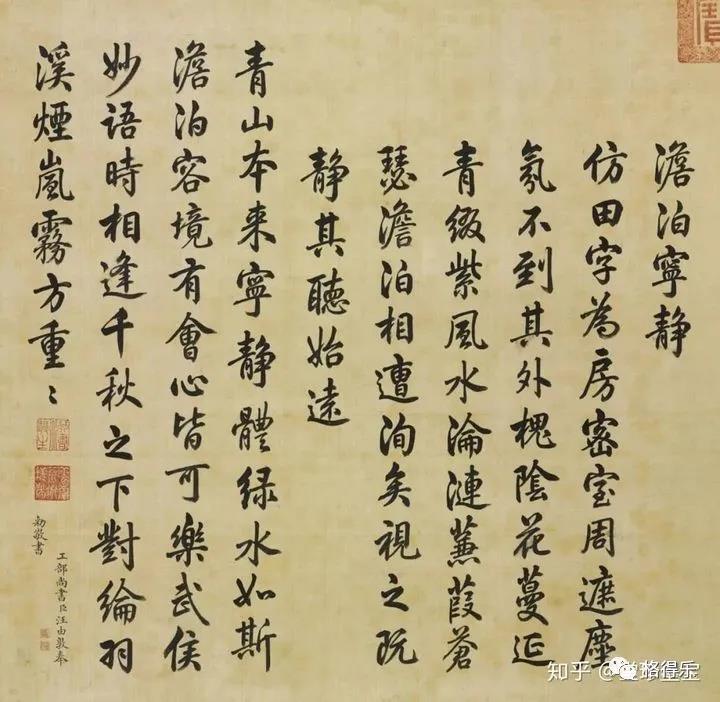 澹泊寧静
仿田字為房密室周遮塵
氛不到其外槐陰花蔓延
青綴紫風水淪漣蒹葭蒼
瑟澹泊相遭洵矣視之既
静其聽始遠
青山本来寧静體緑水如斯
澹泊容境有會心皆可樂武侯
妙語時相逢千秋之下對綸羽
溪煙嵐霧方重〻
工部尚書臣汪由敦奉
勅敬書
知乎
格得乐